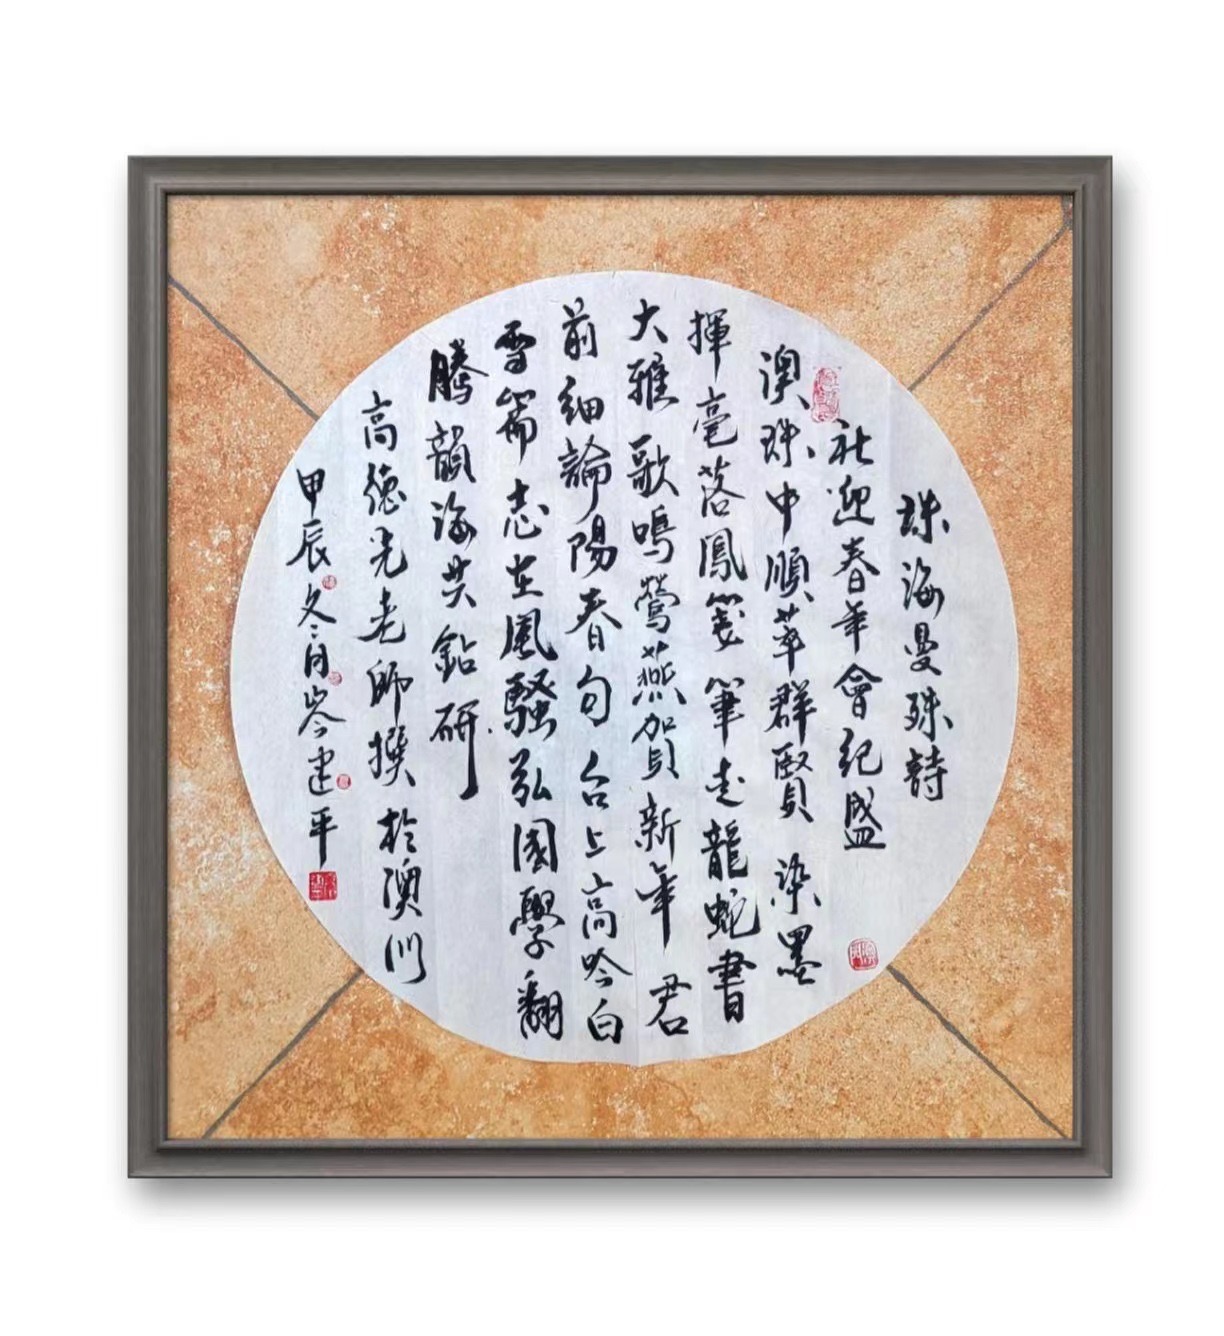 珠海曼殊詩
社迎春年會紀盛
澳珠中順萃群賢 染墨
揮毫落鳳箋 筆走龍蛇書
大雅 歌鳴鶯燕賀新年 君
前細論陽春句 台上高吟白
雪篇 志在風騷弘國學 翻
騰韻海共鉆研
高德光老師撰於澳門
甲辰冬月岑建平